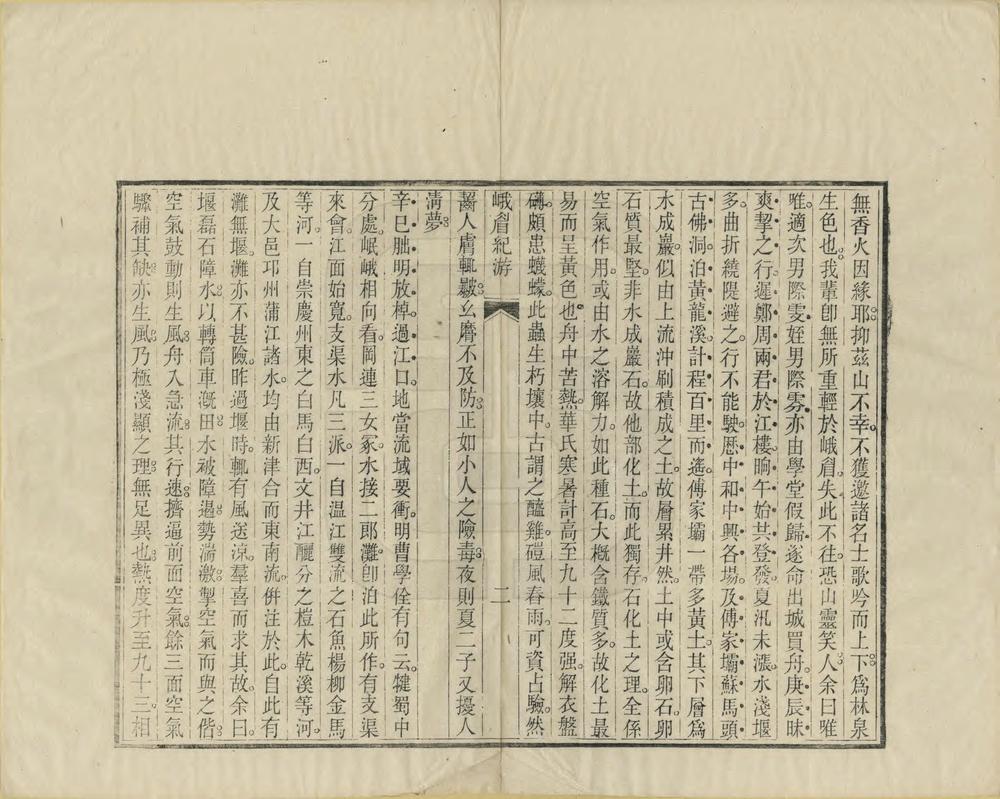 無香火因緣耶抑茲山不幸不獲邀諸名士歌吟而上下為林泉
生色也我輩卽無所重輕於峨眉失此不往恐山靈笑人余曰唯
唯適次男際雯姪男際雰亦由學堂假歸遂命出城買舟庚辰昧
爽挈之行遲鄭周兩君於江樓晌午始共登發夏汛未漲水淺堰
多曲折繞隄避之行不能駛歷中和中興各場及傅家壩蘇馬頭
古佛洞泊黃龍溪計程百里而遙傅家壩一帶多黃土其下層為
水成巖似由上流沖刷積成之土故層累井然土中或含卵石卵
石質最堅非水成巖石故他部化土而此獨存石化土之理全係
空氣作用或由水之溶解力如此種石大概含鐵質多故化土最
易而呈黃色也舟中苦熱華氏寒暑計高至九十二度强解衣盤
礴頗患蠛蠓此蟲生朽壤中古謂之醯雞磑風舂雨可資占驗然
峨眉紀游
二
齧人膚輒皺幺麿不及防正如小人之險毒夜則夏二子又擾人
淸夢
辛巳朏明放棹過江口地當流域要衝明曹學佺有句云犍蜀中
分處岷峨相向看岡連三女冢水接二郎灘卽泊此所作有支渠
來會江面始寬支渠水凡三派一自温江雙流之石魚楊柳金馬
等河一自崇慶州東之白馬白西文井江釃分之榿木乾溪等河
及大邑邛州蒲江諸水均由新津合而東南流併注於此自此有
灘無堰灘亦不甚險昨過堰時輒有風送涼羣喜而求其故余曰
堰磊石障水以轉筒車漑田水被障遏勢湍激掣空氣而與之偕
空氣鼓動則生風舟入急流其行速擠逼前面空氣餘三面空氣
驟補其缺亦生風乃極淺顯之理無足異也熱度升至九十三相